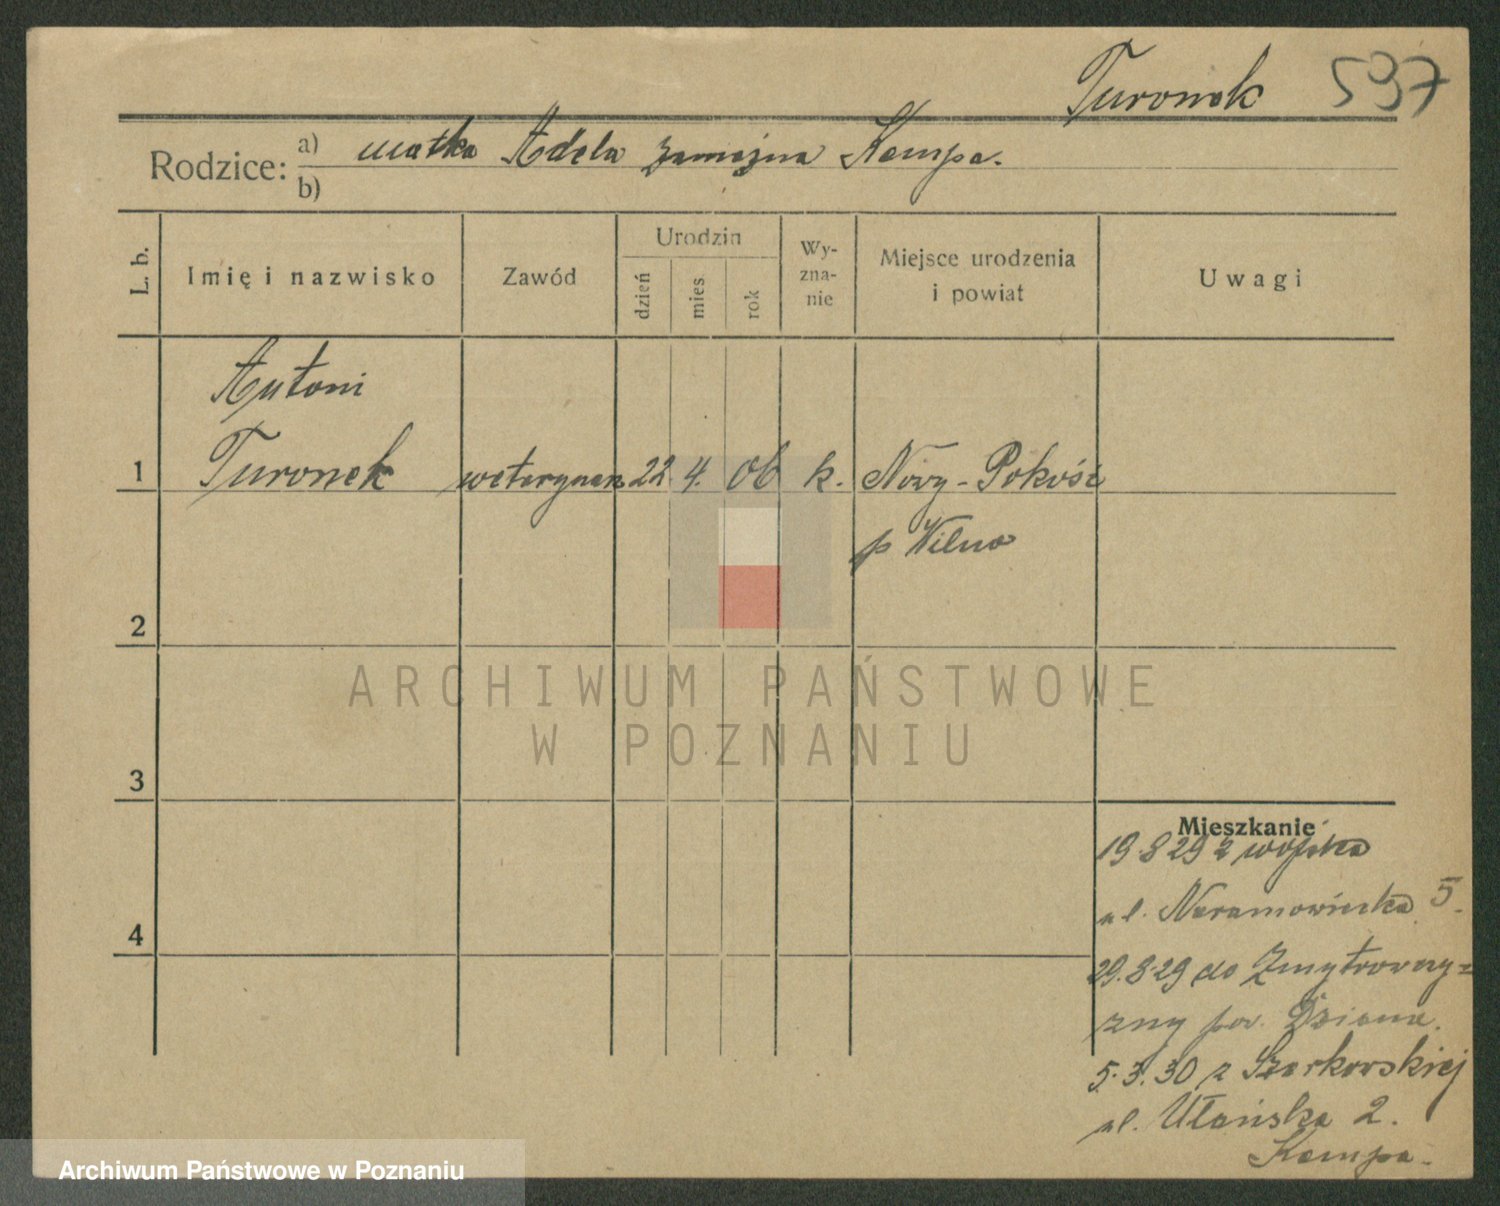 Turonek 537
Rodzice: a) matka Adela zamężna Kempa.
b)
L. b. Imię i nazwisko Zawód Urodzin dzień mies rok Wy-zna-nie Miejsce urodzenia i powiat Uwagi
Antoni
1 Turonek weterynarz 22 4. 06 k. Nowy-Pokość
p Wilno
2
ARCHIWUM PAŃSTWOWE
W POZNANIU
3
Mieszkanie
19 8 29 z wojska
4
ul. Naramowicka 5.
29.8.29 do
pow. Dzisna.
5.3.30 z Szarkowskiej
ul. Ułańska 2.
Kempa.
Archiwum Państwowe w Poznaniu